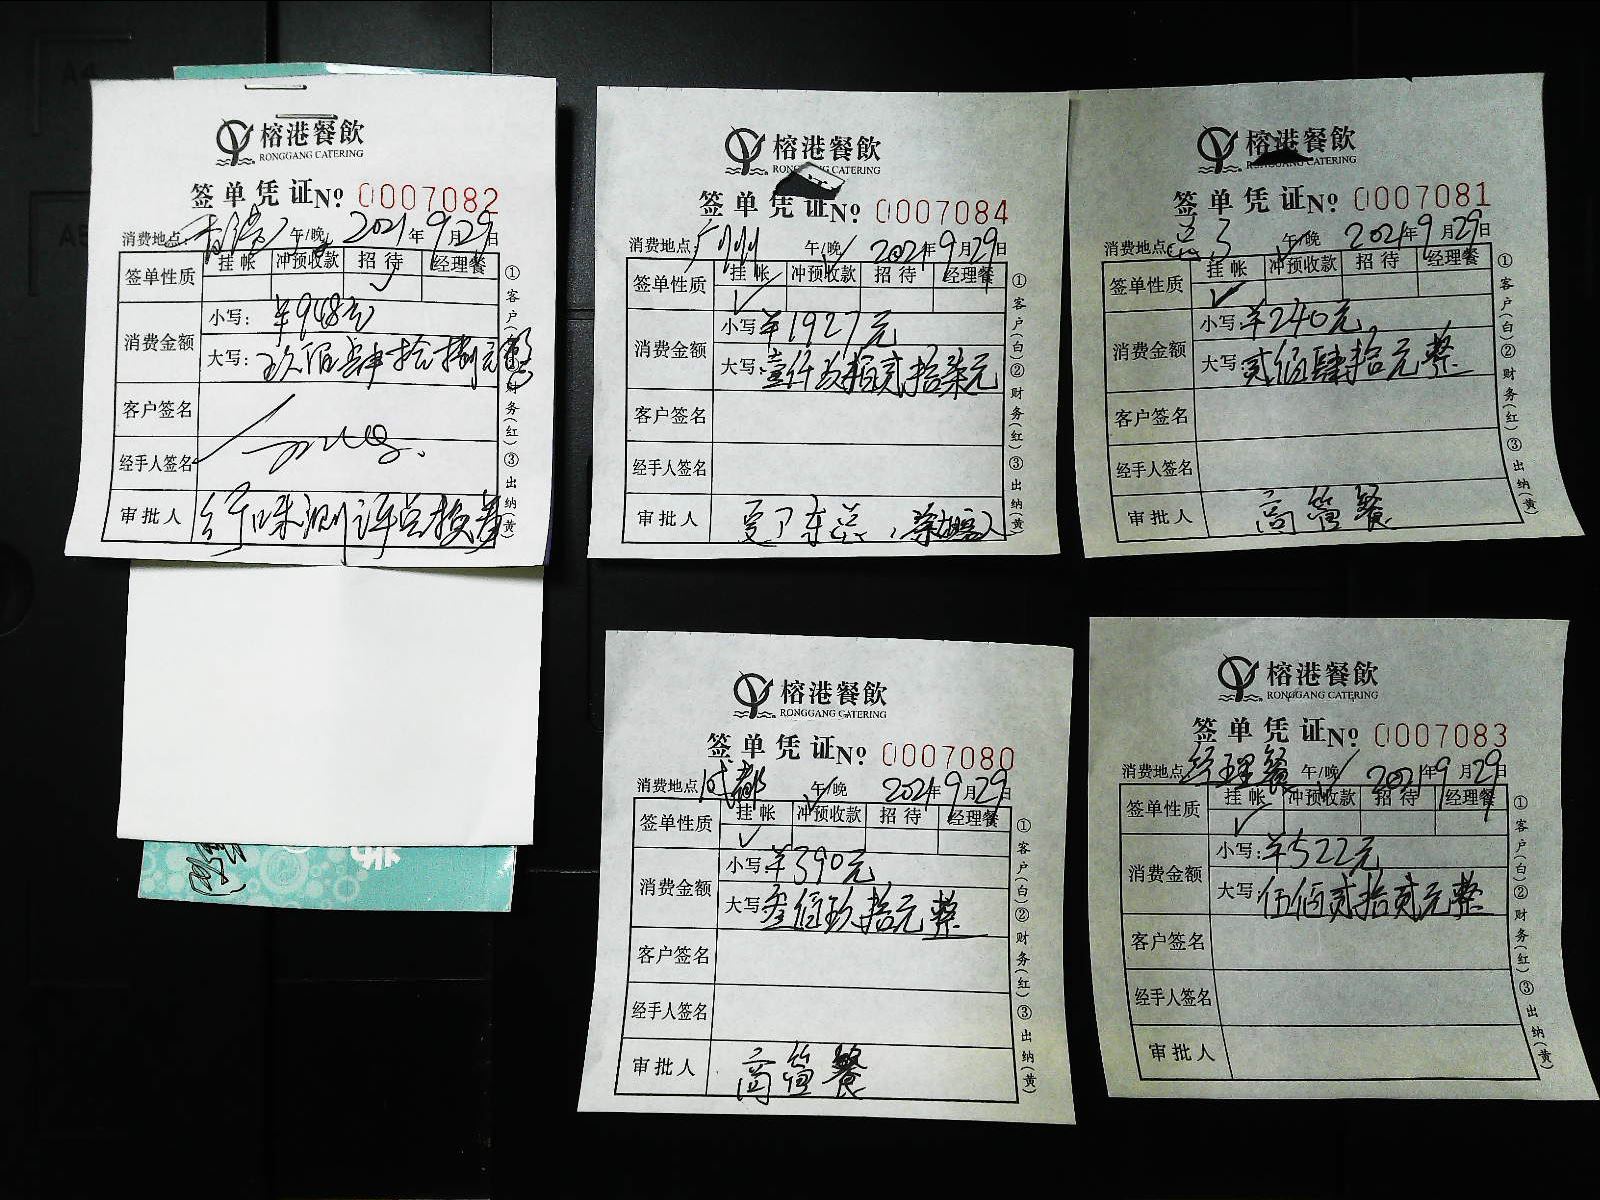 榕港餐飲
RONGGANG CATERING
签单凭证№ 0007082
消费地点: 午/晚 2021年9月29日
签单性质 挂帐 冲预收款 招待 经理餐
消费金额 小写: ¥948元
大写: 玖佰肆拾捌元整
客户签名
经手人签名
审批人
①客户(白)②财务(红)③出纳(黄)
榕港餐飲
RONGGANG CATERING
签单凭证№ 0007084
消费地点 广州 午/晚 2021年9月29日
签单性质 挂帐 冲预收款 招待 经理餐
消费金额 小写 ¥1927元
大写: 壹仟玖佰贰拾柒元
客户签名
经手人签名
审批人
①客户(白)②财务(红)③出纳(黄)
榕港餐飲
RONGGANG CATERING
签单凭证№ 0007081
消费地点 午/晚 2021年9月29日
签单性质 挂帐 冲预收款 招待 经理餐
消费金额 小写 ¥240元
大写 贰佰肆拾元整
客户签名
经手人签名
审批人 高管餐
①客户(白)②财务(红)③出纳(黄)
榕港餐飲
RONGGANG CATERING
签单凭证№ 0007080
消费地点 成都 午/晚 2021年9月29日
签单性质 挂帐 冲预收款 招待 经理餐
消费金额 小写 ¥390元
大写: 叁佰玖拾元整
客户签名
经手人签名
审批人 高管餐
①客户(白)②财务(红)③出纳(黄)
榕港餐飲
RONGGANG CATERING
签单凭证№ 0007083
消费地点 经理餐 午/晚 2021年9月29日
签单性质 挂帐 冲预收款 招待 经理餐
消费金额 小写: ¥522元
大写: 伍佰贰拾贰元整
客户签名
经手人签名
审批人
①客户(白)②财务(红)③出纳(黄)